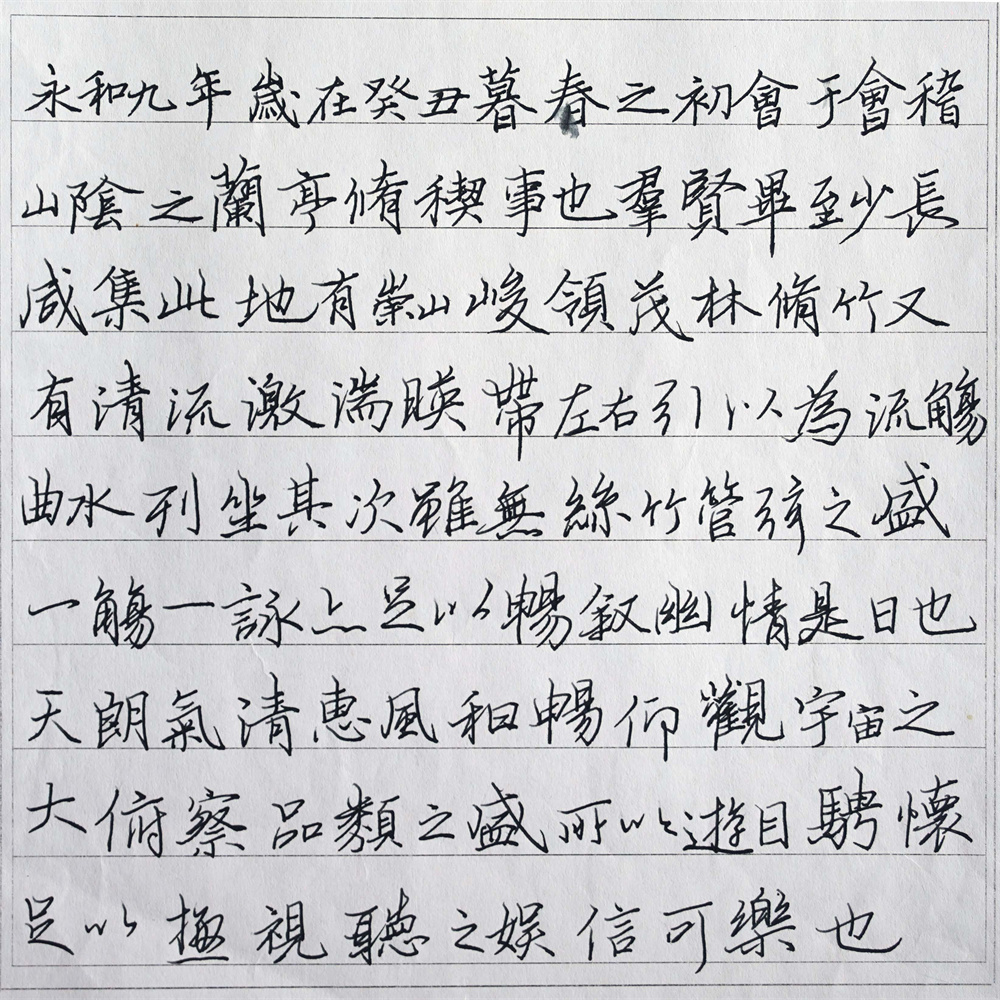 永和九年歲在癸丑暮春之初會于會稽
山陰之蘭亭脩稧事也羣賢畢至少長
咸集此地有崇山峻領茂林脩竹又
有清流激湍暎帶左右引以為流觴
曲水列坐其次雖無絲竹管弦之盛
一觴一詠亦足以暢敘幽情是日也
天朗氣清惠風和暢仰觀宇宙之
大俯察品類之盛所以遊目騁懷
足以極視聽之娛信可樂也